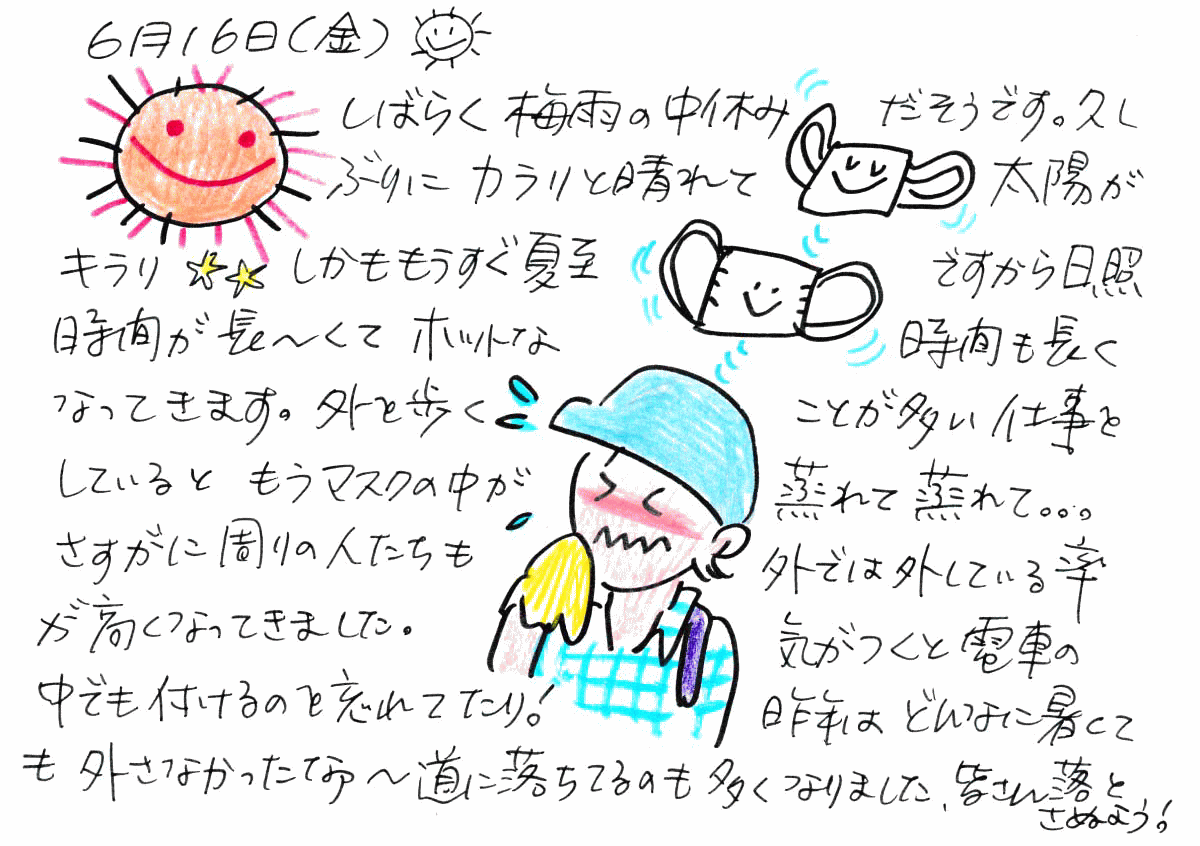 6月16日(金)
しばらく梅雨の中休みだそうです。久し
ぶりにカラリと晴れて太陽が
キラリ しかももうすぐ夏至ですから日照
時間が長〜くてホットな時間も長く
なってきます。外を歩くことが多い仕事を
しているともうマスクの中が蒸れて蒸れて。。。
さすがに周りの人たちも外では外している率
が高くなってきました。気がつくと電車の
中でも付けるのを忘れてたり!昨年はどんなに暑くて
も外さなかったなァ〜道に落ちてるのも多くなりました、皆さん落と
さぬよう!